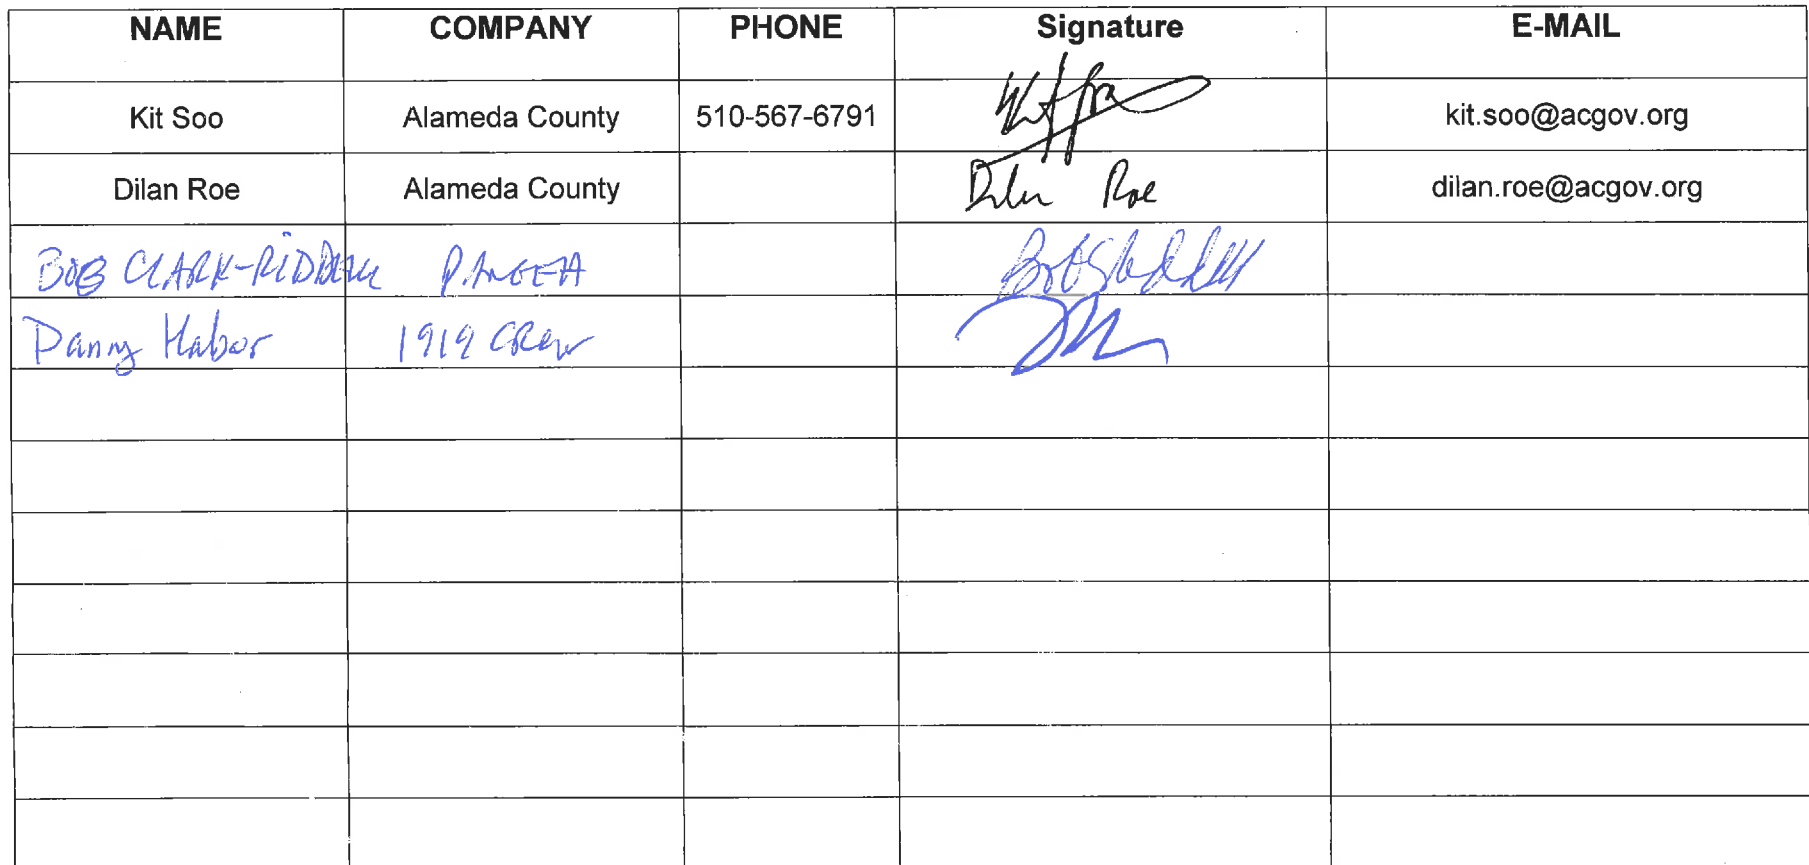 NAME COMPANY PHONE Signature E-MAIL
Kit Soo Alameda County 510-567-6791 kit.soo@acgov.org
Dilan Roe Alameda County Dilan Roe dilan.roe@acgov.org
BOB CLARK-RIDDELL PANGEA
Danny Haber 1919 CREW